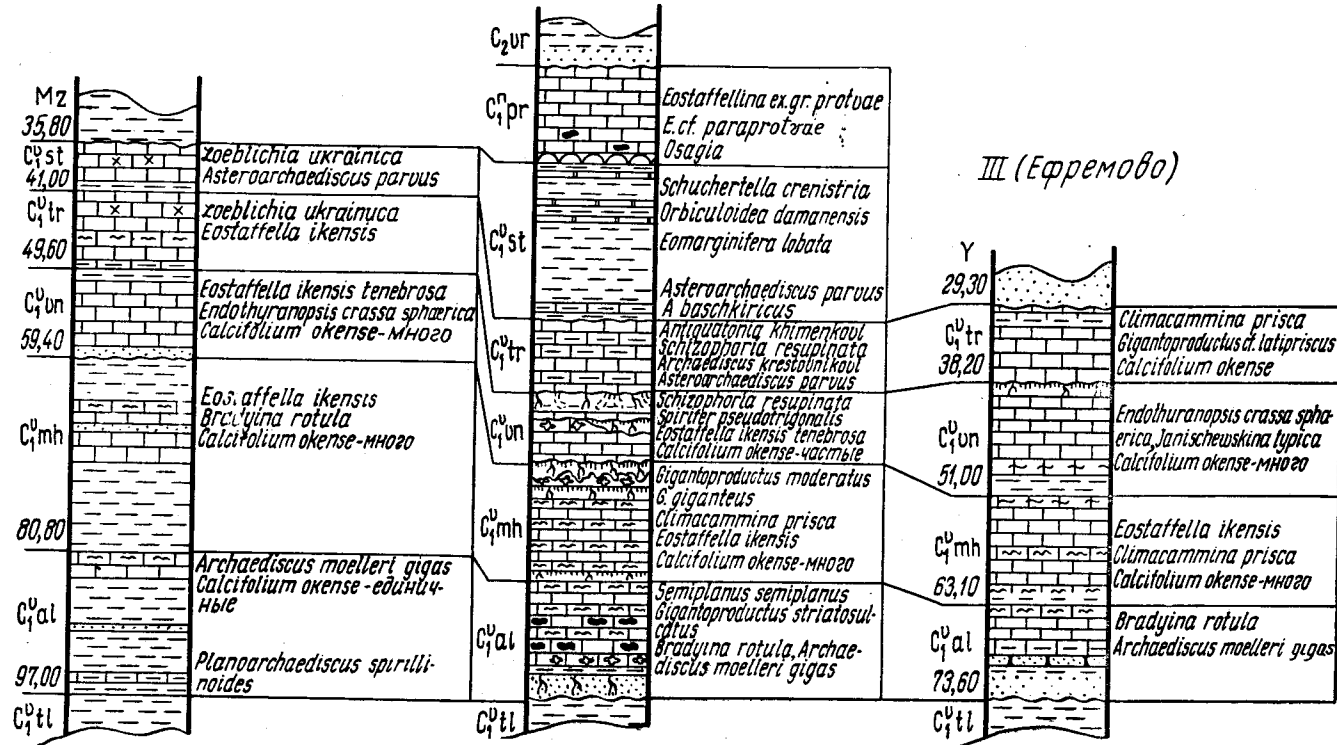 Mz
35,80
C₁ᵛst
41,00
C₁ᵛtr
49,60
C₁ᵛvn
59,40
C₁ᵛmh
80,80
C₁ᵛal
97,00
C₁ᵛtl
Loeblichia ukrainica
Asteroarchaediscus parvus
Loeblichia ukrainuca
Eostaffella ikensis
Eostaffella ikensis tenebrosa
Endothyranopsis crassa sphaerica
Calcifolium okense-много
Eos.affella ikensis
Bradyina rotula
Calcifolium okense-много
Archaediscus moelleri gigas
Calcifolium okense-единич-
ные
Planoarchaediscus spirilli-
noides
C₂vr
C₁ⁿpr
C₁ᵛst
C₁ᵛtr
C₁ᵛvn
C₁ᵛmh
C₁ᵛal
C₁ᵛtl
Eostaffellina ex.gr. protvae
E.cf. paraprotvae
Osagia
Schuchertella crenistria
Orbiculoidea damanensis
Eomarginifera lobata
Asteroarchaediscus parvus
A baschkiricus
Antiquatonia khimenkovi
Schizophoria resupinata
Archaediscus krestovnikovi
Asteroarchaediscus parvus
Schizophoria resupinata
Spirifer pseudotrigonalis
Eostaffella ikensis tenebrosa
Calcifolium okense-частые
Gigantoproductus moderatus
G. giganteus
Climacammina prisca
Eostaffella ikensis
Calcifolium okense-много
Semiplanus semiplanus
Gigantoproductus striatosul-
catus
Bradyina rotula, Archae-
discus moelleri gigas
III (Ефремово)
Y
29,30
C₁ᵛtr
38,20
C₁ᵛvn
51,00
C₁ᵛmh
63,10
C₁ᵛal
73,60
C₁ᵛtl
Climacammina prisca
Gigantoproductus cf. latipriscus
Calcifolium okense
Endothyranopsis crassa spha-
erica, Janischewskina typica
Calcifolium okense-много
Eostaffella ikensis
Climacammina prisca
Calcifolium okense-много
Bradyina rotula
Archaediscus moelleri gigas